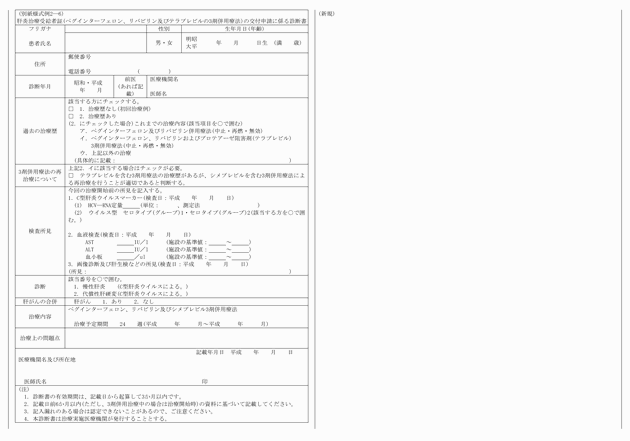 (別紙様式例2-6)
肝炎治療受給者証(ペグインターフェロン、リバビリン及びテラプレビルの3剤併用療法)の交付申請に係る診断書
フリガナ 性別 生年月日(年齢)
患者氏名 男・女 明昭 年 月 日生 (満 歳)
大平
住所 郵便番号
電話番号 ( )
診断年月 昭和・平成 年 月 前医(あれば記載) 医療機関名
医師名
過去の治療歴 該当する方にチェックする。
□ 1. 治療歴なし(初回治療例)
□ 2. 治療歴あり
(2. にチェックした場合)これまでの治療内容(該当項目を○で囲む)
ア. ペグインターフェロン及びリバビリン併用療法(中止・再燃・無効)
イ. ペグインターフェロン、リバビリンおよびプロテアーゼ阻害剤(テラプレビル)
3剤併用療法(中止・再燃・無効)
ウ. 上記以外の治療
(具体的に記載: )
3剤併用療法の再治療について 上記2. イに該当する場合はチェックが必要。
□ テラプレビルを含む3剤併用療法の治療歴があるが、シメプレビルを含む3剤併用療法による再治療を行うことが適切であると判断する。
検査所見 今回の治療開始前の所見を記入する。
1. C型肝炎ウイルスマーカー(検査日:平成 年 月 日)
(1) HCV-RNA定量______(単位: 、測定法 )
(2) ウイルス型 セロタイプ(グループ)1・セロタイプ(グループ)2(該当する方を○で囲む。)
2. 血液検査(検査日:平成 年 月 日)
AST ______IU/l (施設の基準値:______~______)
ALT ______IU/l (施設の基準値:______~______)
血小板 ______/μl (施設の基準値:______~______)
3. 画像診断及び肝生検などの所見(検査日:平成 年 月 日)
(所見: )
診断 該当番号を○で囲む。
1. 慢性肝炎 (C型肝炎ウイルスによる。)
2. 代償性肝硬変(C型肝炎ウイルスによる。)
肝がんの合併 肝がん 1. あり 2. なし
治療内容 ペグインターフェロン、リバビリン及びシメプレビル3剤併用療法
治療予定期間 24 週(平成 年 月~平成 年 月)
治療上の問題点
記載年月日 平成 年 月 日
医療機関名及び所在地
医師氏名 印
(注)
1. 診断書の有効期間は、記載日から起算して3か月以内です。
2. 記載日前6か月以内(ただし、3剤併用治療中の場合は治療開始時)の資料に基づいて記載してください。
3. 記入漏れのある場合は認定できないことがあるので、ご注意ください。
4. 本診断書は治療実施医療機関が発行することとする。
(新規)